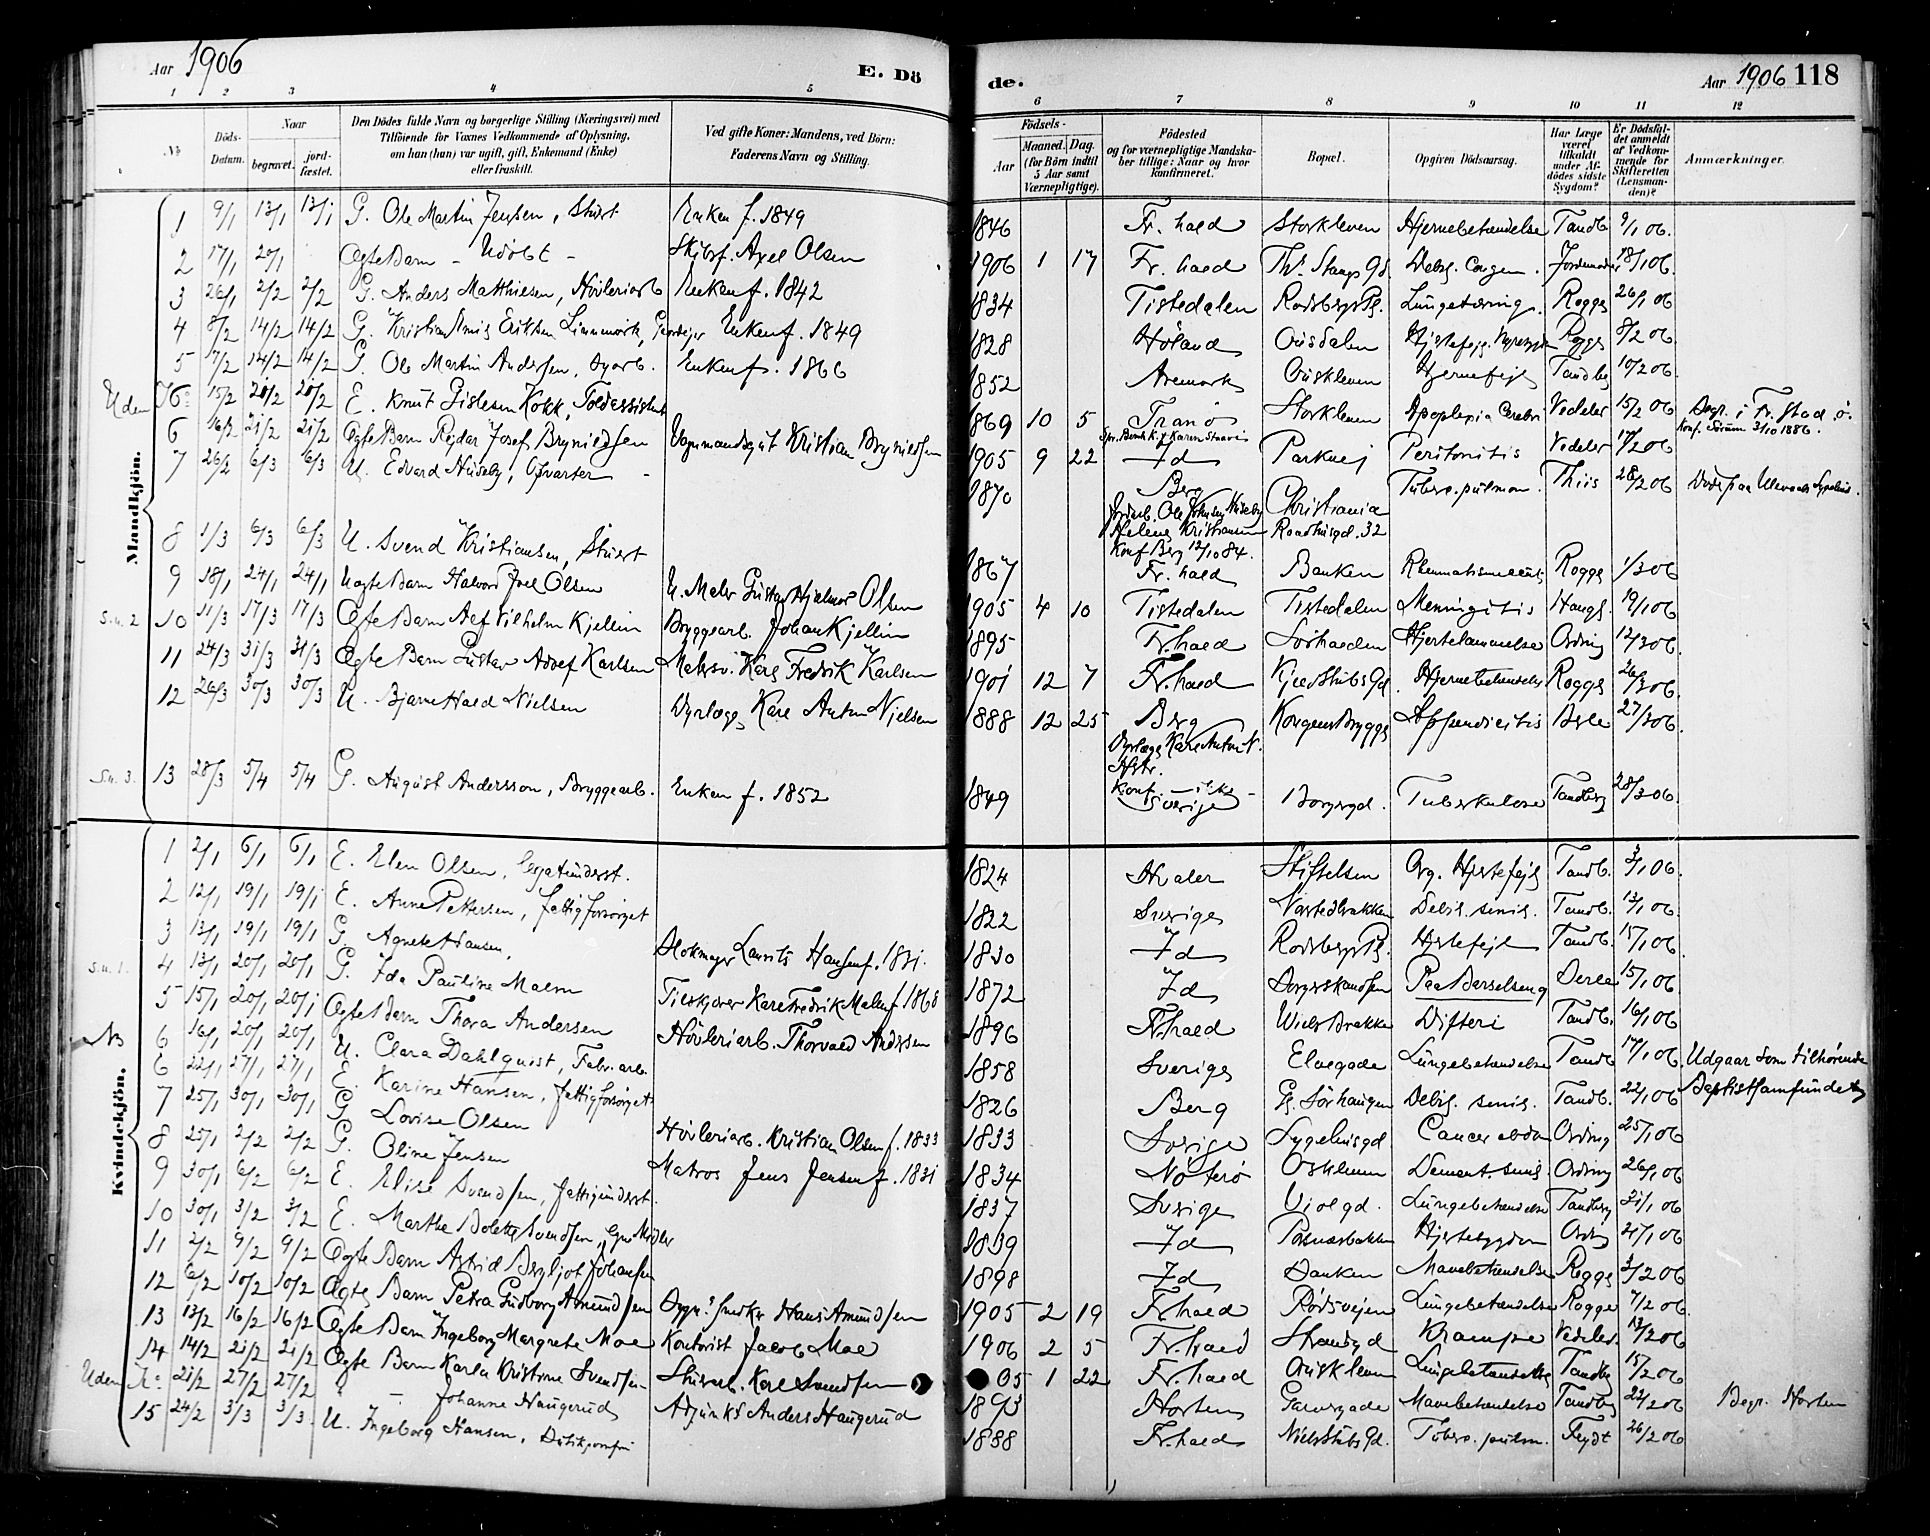 Aar 1906
E. Dö
de.
Aar 1906 118
1 2 3 4 5 6 7 8 9 10 11 12
№
Döds-Datum.
Naar
begravet.
jord-fæstet.
Den Dödes fulde Navn og borgerlige Stilling (Næringsvei) med
Tilföiende for Voxnes Vedkommende af Oplysning,
om han (hun) var ugift, gift, Enkemand (Enke)
eller fraskilt.
Ved gifte Koner: Mandens, ved Börn:
Faderens Navn og Stilling.
Födsels-
Aar
Maaned. Dag.
(for Börn indtil
5 Aar samt
Værnepligtige).
Födested
og for værnepligtige Mandska-
ber tillige: Naar og hvor
konfirmeret.
Bopæl.
Opgiven Dödsaarsag.
Har Læge
været
tilkaldt
under Af-
dödes sidste
Sygdom?
Er Dödsfal-
det anmeldt
af Vedkom-
mende for
Skifteretten
(Lensman-
den)?
Anmærkninger.
Mandkjön.
1 9/1 13/1 13/1 G. Ole Martin Jensen, Enken f. 1849 1846 Fr.hald Storkleven Hjernebetændelse Tandb. 9/1 06.
2 17/1 20/1 Ægte Barn - Udöbt - Skibsf. Axel Olsen 1906 1 17 Fr.hald Th. Stangs Gd. Debil. Congen. Jordemoder 18/1 06.
3 26/1 2/2 2/2 G. Anders Matthisen, Hövleriarb Enken f. 1842 1834 Tistedalen Rödsberg Lungetæring. Rogge 26/1 06
4 8/2 14/2 14/2 G. Kristian Eriksen Enken f. 1849 1828 Höland Rogge 8/2 06
5 7/2 14/2 14/2 G. Ole Martin Andersen, Enken f. 1866 1852 Aremark Hjernefejl Tandberg 10/2 06.
Uden No 15/2 20/2 20/2 E. Knut Gislesen Kokk, Toldassistent 1869 10 5 Tranö Storkleven Apoplexia Cerebri Vedeler 15/2 06 Begr. i Fr.stad
Konf. 3/10 1886.
6 16/2 21/2 21/2 Ægte Barn Rejdar Josef Brynildsen Vognmandsgut Kristian Brynildsen 1905 9 22 Id Parkvej Peritonitis Vedeler 17/2 06
7 26/2 6/3 6/3 U. Edvard Huseby, Garver - 1870 Berg Christiania Tuberc. pulmon. Thiis 28/2 06 Döde paa Ullevaal Sygehus.
Raadhusgd. 32
Konf Berg 12/10 84.
8 1/3 6/3 6/3 U. Svend Kristiansen, 1867 Fr.hald Banken Rogge 1/3 06
9 18/1 24/1 24/1 Uægte Barn Halvord Joel Olsen U. Maler Gustav Hjalmar Olsen 1905 4 10 Tistedalen Tistedalen Menningitis Haugl. 19/1 06
s.n. 2 10 11/3 17/3 17/3 Ægte Barn Vilhelm Kjellin Bryggearb. Johan Kjellin 1895 Fr.hald Sörhalden Hjertelammelse Ording 12/3 06
11 24/3 31/3 31/3 Ægte Barn Gustav Adolf Karlsen Karl Fredrik Karlsen 1901 12 7 Fr.hald Hjernebetændelse Rogge 26/3 06.
12 26/3 30/3 30/3 U. Bjarne Hald Nielsen Dyrlæge Karl Anton Nielsen 1888 12 25 Berg Kongens Brygge Appendicitis 27/3 06.
Dyrlæge Karl Anton N.
Konf. - ikke -
s.n. 3. 13 28/3 5/4 5/4 G. August Andersson, Bryggearb. Enken f. 1852 1849 Sverige Borgergd. Tuberkulose Tandberg 28/3 06.
Kvindekjön.
1 2/1 6/1 6/1 E. Elen Olsen, 1824 Hvaler Stiftelsen Org. Hjertefejl Tandb. 3/1 06.
2 12/1 19/1 19/1 E. Anne Pettersen, fattigforsörget 1822 Sverige Debil. senil. Tandb. 13/1 06.
3 13/1 19/1 19/1 G. Agnete Hansen, Blokmager Laurits Hansen f. 1831. 1830 Id Rödsberg Hjertefejl Tandb. 15/1 06.
s.n. 1. 4 13/1 20/1 20/1 G. Ida Pauline Malm Karl Fredrik Malm f. 1868 1872 Id Paa Barselseng 15/1 06.
5 15/1 20/1 20/1 Ægte Barn Thora Andersen Hövleriarb. Thorvald Andersen 1896 Fr.hald Wiels Brakke Difteri Tandb. 16/1 06
6 16/1 20/1 20/1 U. Clara Dahlquist, Fabr. arb. 1858 Sverige Elvegade Lungebetændelse Tandb 17/1 06 Udgaar som tilhörende
Baptistsamfundet
6 22/1 27/1 27/1 E. Karine Hansen, fattigforsörget 1826 Berg Gl. Sörhaugen Debil. senil. Tandb. 22/1 06
7 25/1 30/1 30/1 G. Lovise Olsen Hövleriarb. Kristian Olsen f. 1833 1833 Sverige Sygehusgd Cancer abdom Ording 25/1 06
8 25/1 2/2 2/2 G. Oline Jensen Matros Jens Jensen f. 1831 1834 Nötterö Dement. senil. Ording 26/1 06
9 30/1 6/2 6/2 E. Elise Svendsen, fattigunderst. 1837 Sverige Violgd. Lungebetændelse Tandberg 31/1 06
10 30/1 3/2 3/2 E. Marthe Bolette Svendsen, 1839 Id Hjertesygdom Ording 31/1 06
11 2/2 9/2 9/2 Ægte Barn Astrid Bergljot Johansen 1898 Id Banken Mavebetændelse Rogge 3/2 06
12 6/2 10/2 10/2 Ægte Barn Petra Gudborg Amundsen Hans Amundsen 1905 2 19 Fr.hald Rödsvejen Lungebetændelse Rogge 7/2 06.
13 13/2 16/2 16/2 Ægte Barn Ingeborg Margrete Moe Kontorist Jacob Moe 1906 2 5 Fr.hald Strandgd Krampe Vedeler 13/2 06
14 14/2 21/2 21/2 Ægte Barn Karla Kristine Svendsen Karl Svendsen 05 1 22 Fr.hald Lungebetændelse Tandbg 15/2 06
Uden No 21/2 27/2 27/2 " - Johanne Haugerud Adjunkt Anders Haugerud 1893 Horten Garvergade Mavebetændelse Tandberg 22/2 06 Begr. Horten
15 24/2 3/3 3/3 U. Ingeborg Hansen, Butikjomfru 1888 Fr.hald Niels Stubs Gd. Tuberc. pulm. Feydt 26/2 06